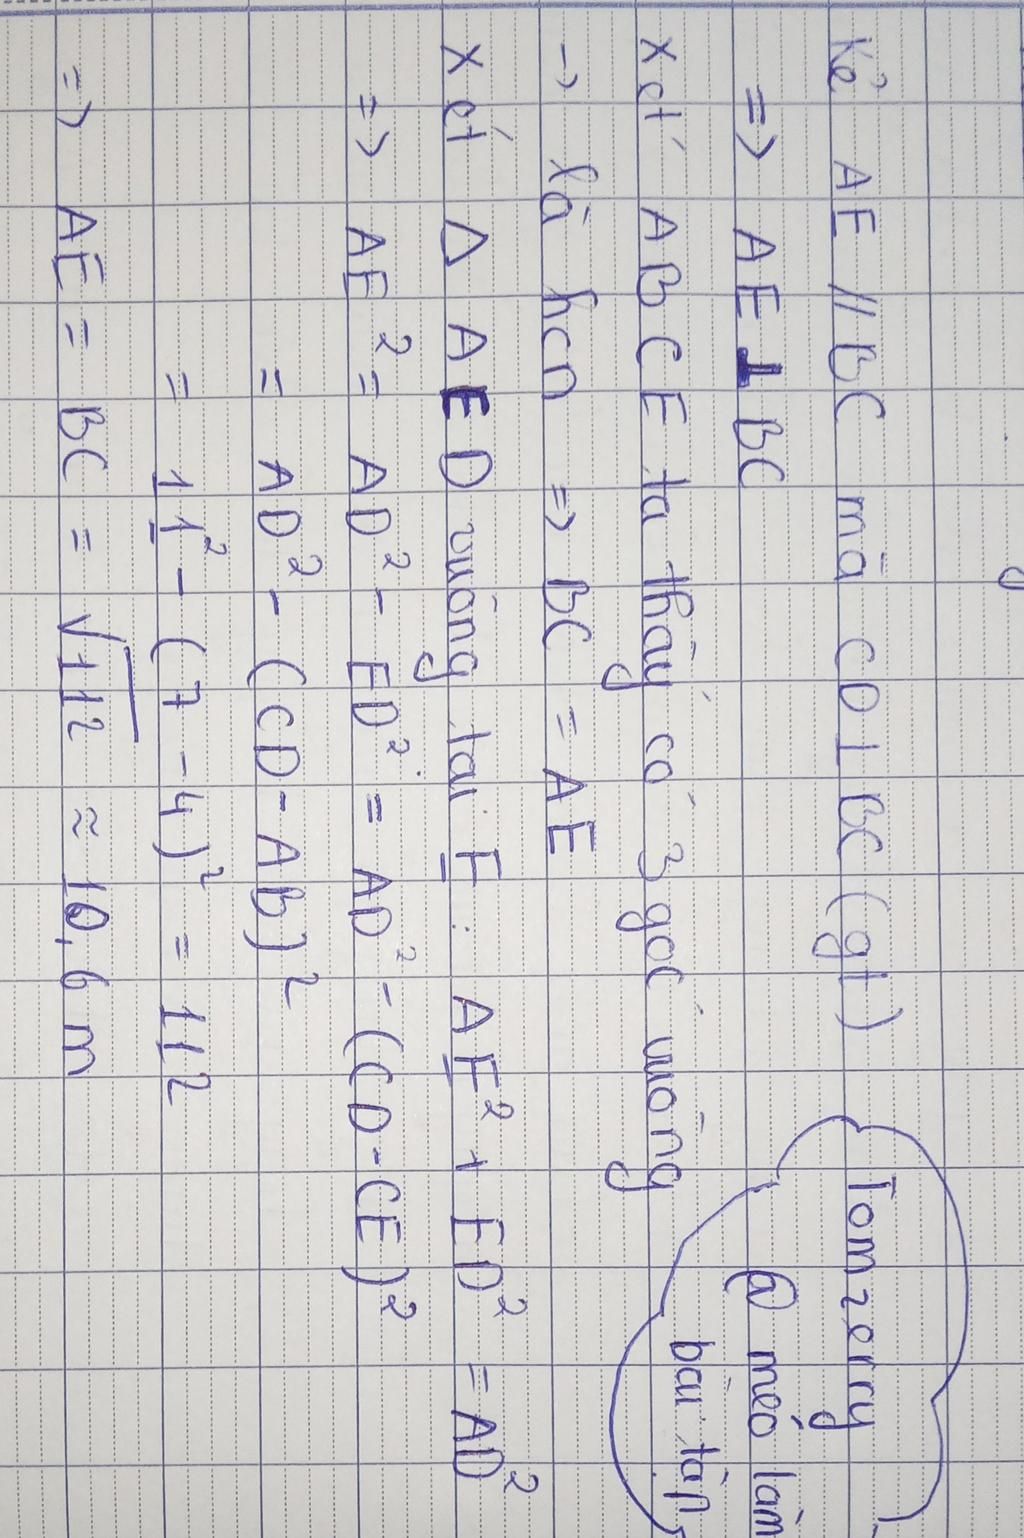 Kẻ AE // BC mà CD ⊥ BC (gt)
=> AE ⊥ BC
Xét ABCE ta thấy có 3 góc vuông
-> là hcn => BC = AE
Xét Δ AED vuông tại E : AE² + ED² = AD²
=> AE² = AD² - ED² = AD² - (CD - CE)²
= AD² - (CD - AB)²
= 11² - (7 - 4)² = 112
=> AE = BC = √112 ≈ 10,6 m
Tomzerry
@ mèo làm
bài tập